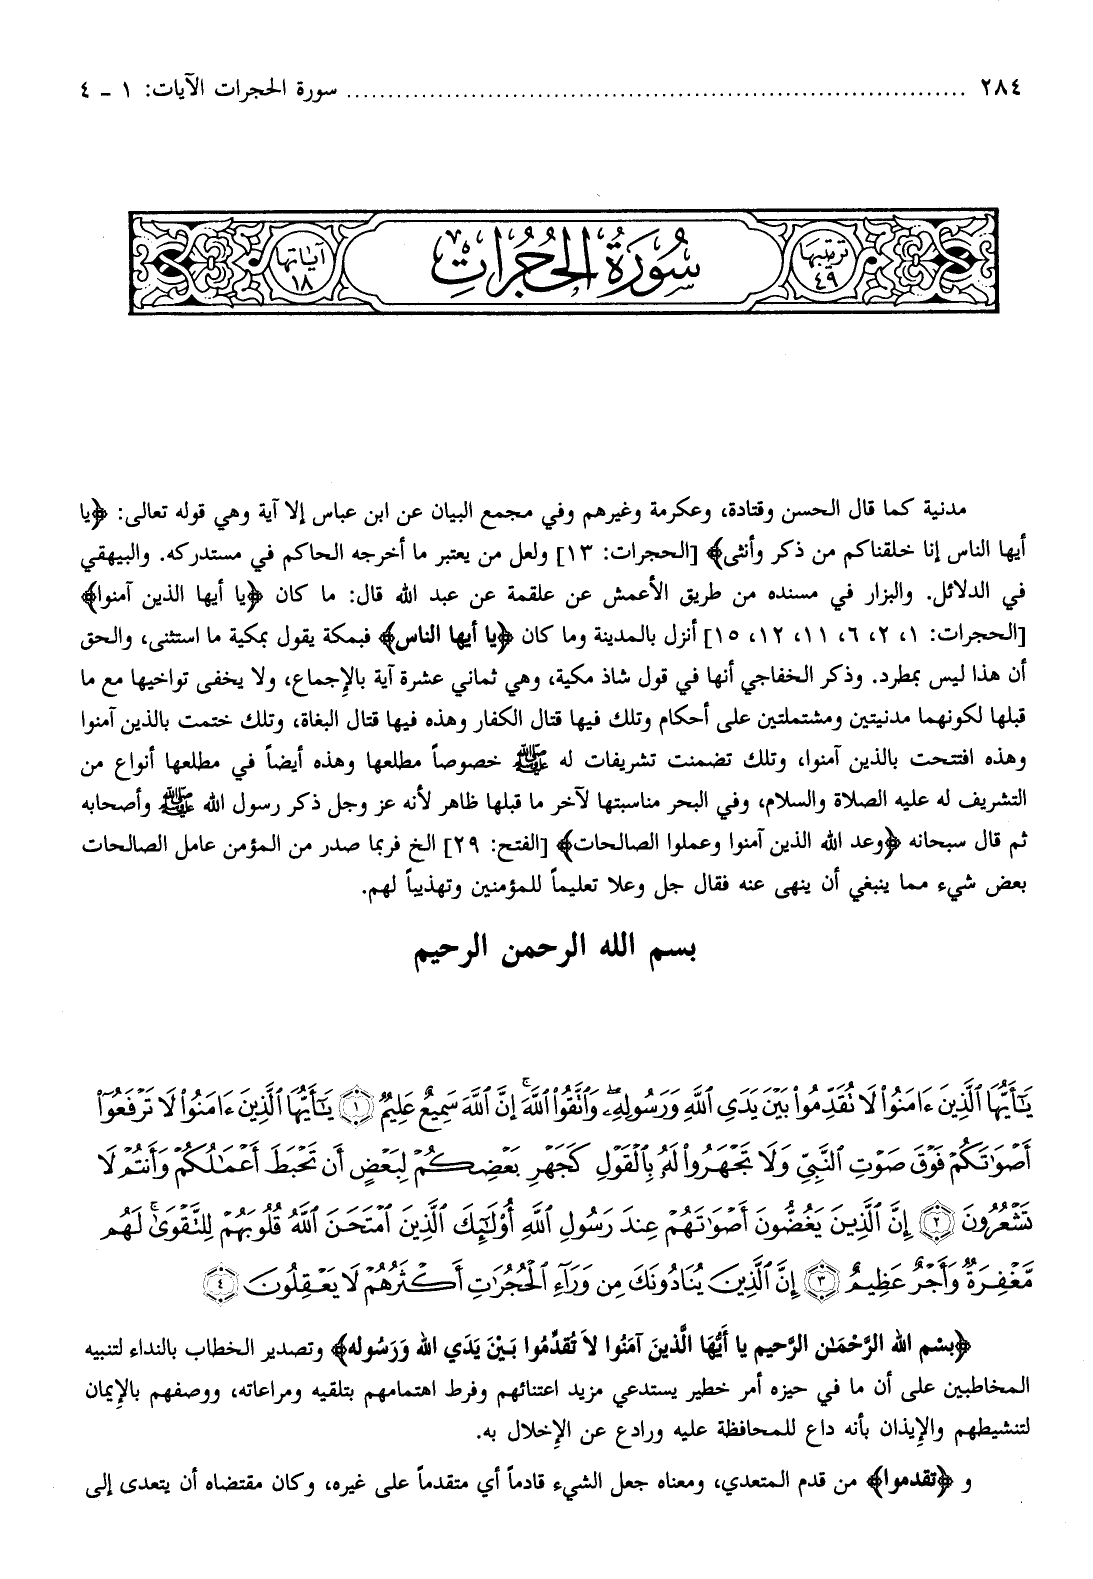 ٢٨٤ ........................................................................ سورة الحجرات الآيات: ١ - ٤
ترتيبها ٤٩ سُورَةُ الحُجُرَاتِ آياتها ١٨
مدنية كما قال الحسن وقتادة، وعكرمة وغيرهم وفي مجمع البيان عن ابن عباس إلا آية وهي قوله تعالى: ﴿يا
أيها الناس إنا خلقناكم من ذكر وأنثى﴾ [الحجرات: ١٣] ولعل من يعتبر ما أخرجه الحاكم في مستدركه. والبيهقي
في الدلائل. والبزار في مسنده من طريق الأعمش عن علقمة عن عبد الله قال: ما كان ﴿يا أيها الذين آمنوا﴾
[الحجرات: ١، ٢، ٦، ١١، ١٢، ١٥] أنزل بالمدينة وما كان ﴿يا أيها الناس﴾ فبمكة يقول بمكية ما استثنى، والحق
أن هذا ليس بمطرد. وذكر الخفاجي أنها في قول شاذ مكية، وهي ثماني عشرة آية بالإجماع، ولا يخفى تواخيها مع ما
قبلها لكونهما مدنيتين ومشتملتين على أحكام وتلك فيها قتال الكفار وهذه فيها قتال البغاة، وتلك ختمت بالذين آمنوا
وهذه افتتحت بالذين آمنوا، وتلك تضمنت تشريفات له ﷺ خصوصاً مطلعها وهذه أيضاً في مطلعها أنواع من
التشريف له عليه الصلاة والسلام، وفي البحر مناسبتها لآخر ما قبلها ظاهر لأنه عز وجل ذكر رسول الله ﷺ وأصحابه
ثم قال سبحانه ﴿وعد الله الذين آمنوا وعملوا الصالحات﴾ [الفتح: ٢٩] الخ فربما صدر من المؤمن عامل الصالحات
بعض شيء مما ينبغي أن ينهى عنه فقال جل وعلا تعليماً للمؤمنين وتهذيباً لهم.
بسم الله الرحمن الرحيم
يَٰٓأَيُّهَا ٱلَّذِينَ ءَامَنُوا۟ لَا تُقَدِّمُوا۟ بَيْنَ يَدَىِ ٱللَّهِ وَرَسُولِهِۦ ۖ وَٱتَّقُوا۟ ٱللَّهَ ۚ إِنَّ ٱللَّهَ سَمِيعٌ عَلِيمٌ ١ يَٰٓأَيُّهَا ٱلَّذِينَ ءَامَنُوا۟ لَا تَرْفَعُوٓا۟
أَصْوَٰتَكُمْ فَوْقَ صَوْتِ ٱلنَّبِىِّ وَلَا تَجْهَرُوا۟ لَهُۥ بِٱلْقَوْلِ كَجَهْرِ بَعْضِكُمْ لِبَعْضٍ أَن تَحْبَطَ أَعْمَٰلُكُمْ وَأَنتُمْ لَا
تَشْعُرُونَ ٢ إِنَّ ٱلَّذِينَ يَغُضُّونَ أَصْوَٰتَهُمْ عِندَ رَسُولِ ٱللَّهِ أُو۟لَٰٓئِكَ ٱلَّذِينَ ٱمْتَحَنَ ٱللَّهُ قُلُوبَهُمْ لِلتَّقْوَىٰ ۚ لَهُم
مَّغْفِرَةٌ وَأَجْرٌ عَظِيمٌ ٣ إِنَّ ٱلَّذِينَ يُنَادُونَكَ مِن وَرَآءِ ٱلْحُجُرَٰتِ أَكْثَرُهُمْ لَا يَعْقِلُونَ ٤
﴿بسْم الله الرَّحْمَٰن الرَّحيم يا أَيُّهَا الَّذينَ آمَنُوا لاَ تُقدِّمُوا بَيْنَ يَدَي الله وَرَسُوله﴾ وتصدير الخطاب بالنداء لتنبيه
المخاطبين على أن ما في حيزه أمر خطير يستدعي مزيد اعتنائهم وفرط اهتمامهم بتلقيه ومراعاته، ووصفهم بالإيمان
لتنشيطهم والإيذان بأنه داع للمحافظة عليه ورادع عن الإخلال به.
و ﴿تقدموا﴾ من قدم المتعدي، ومعناه جعل الشيء قادماً أي متقدماً على غيره، وكان مقتضاه أن يتعدى إلى